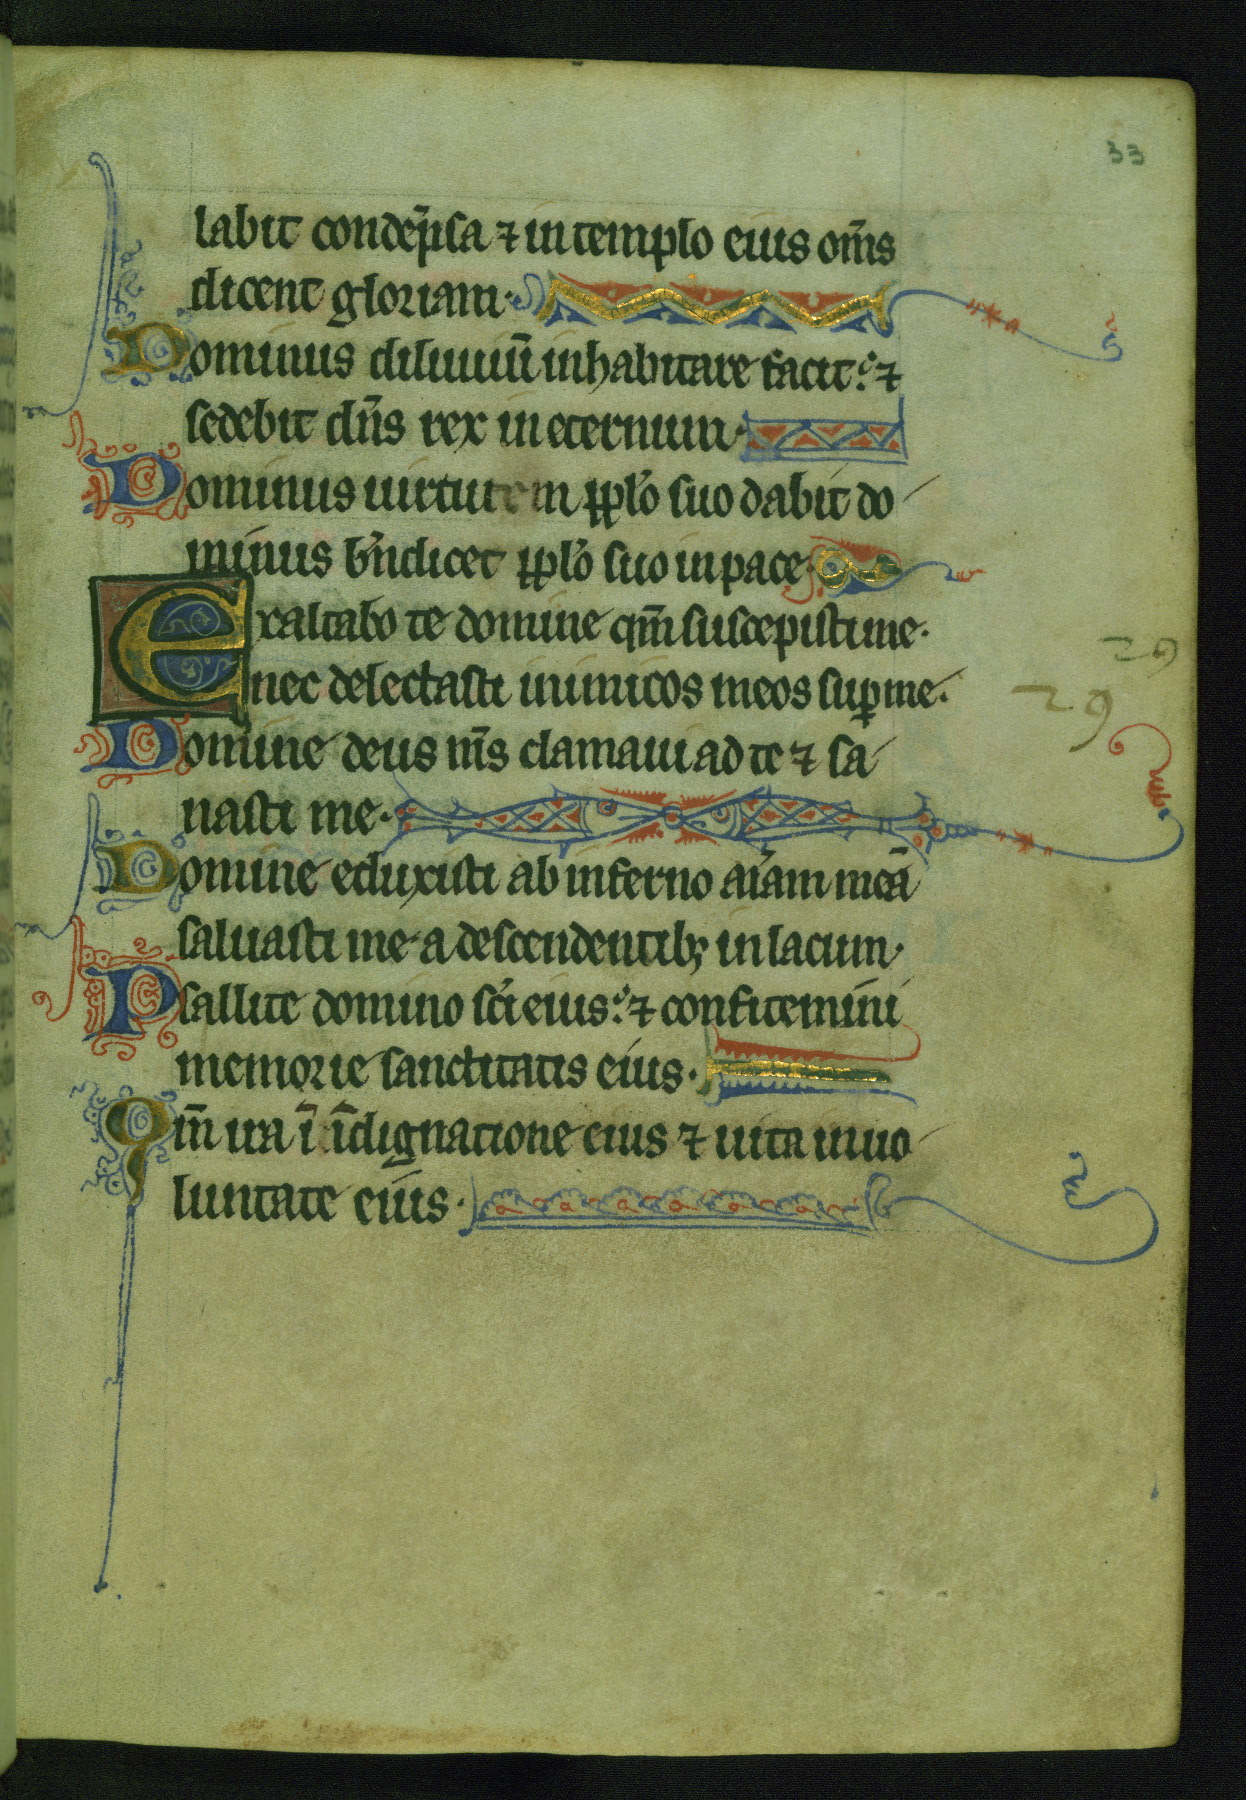 33
labit condēpsa ⁊ in templo eius om̄s
dicent gloriam·
Dominus diluuiū inhabitare facit: ⁊
sedebit dn̄s rex in eternum·
Dominus uirtutem pplo suo dabit do
minus bn̄dicet pplo suo in pace·
Exaltabo te domine qm̄ suscepisti me·
nec delectasti inimicos meos sup me·
29
29
Domine deus m̄s clamaui ad te ⁊ sa
nasti me·
Domine eduxisti ab inferno aīam meā
saluasti me a descendentibꝫ in lacum·
Psallite domino sc̄i eius: ⁊ confitemini
memorie sanctitatis eius·
Qm̄ ira ī īdignatione eius ⁊ uita in uo
luntate eius·